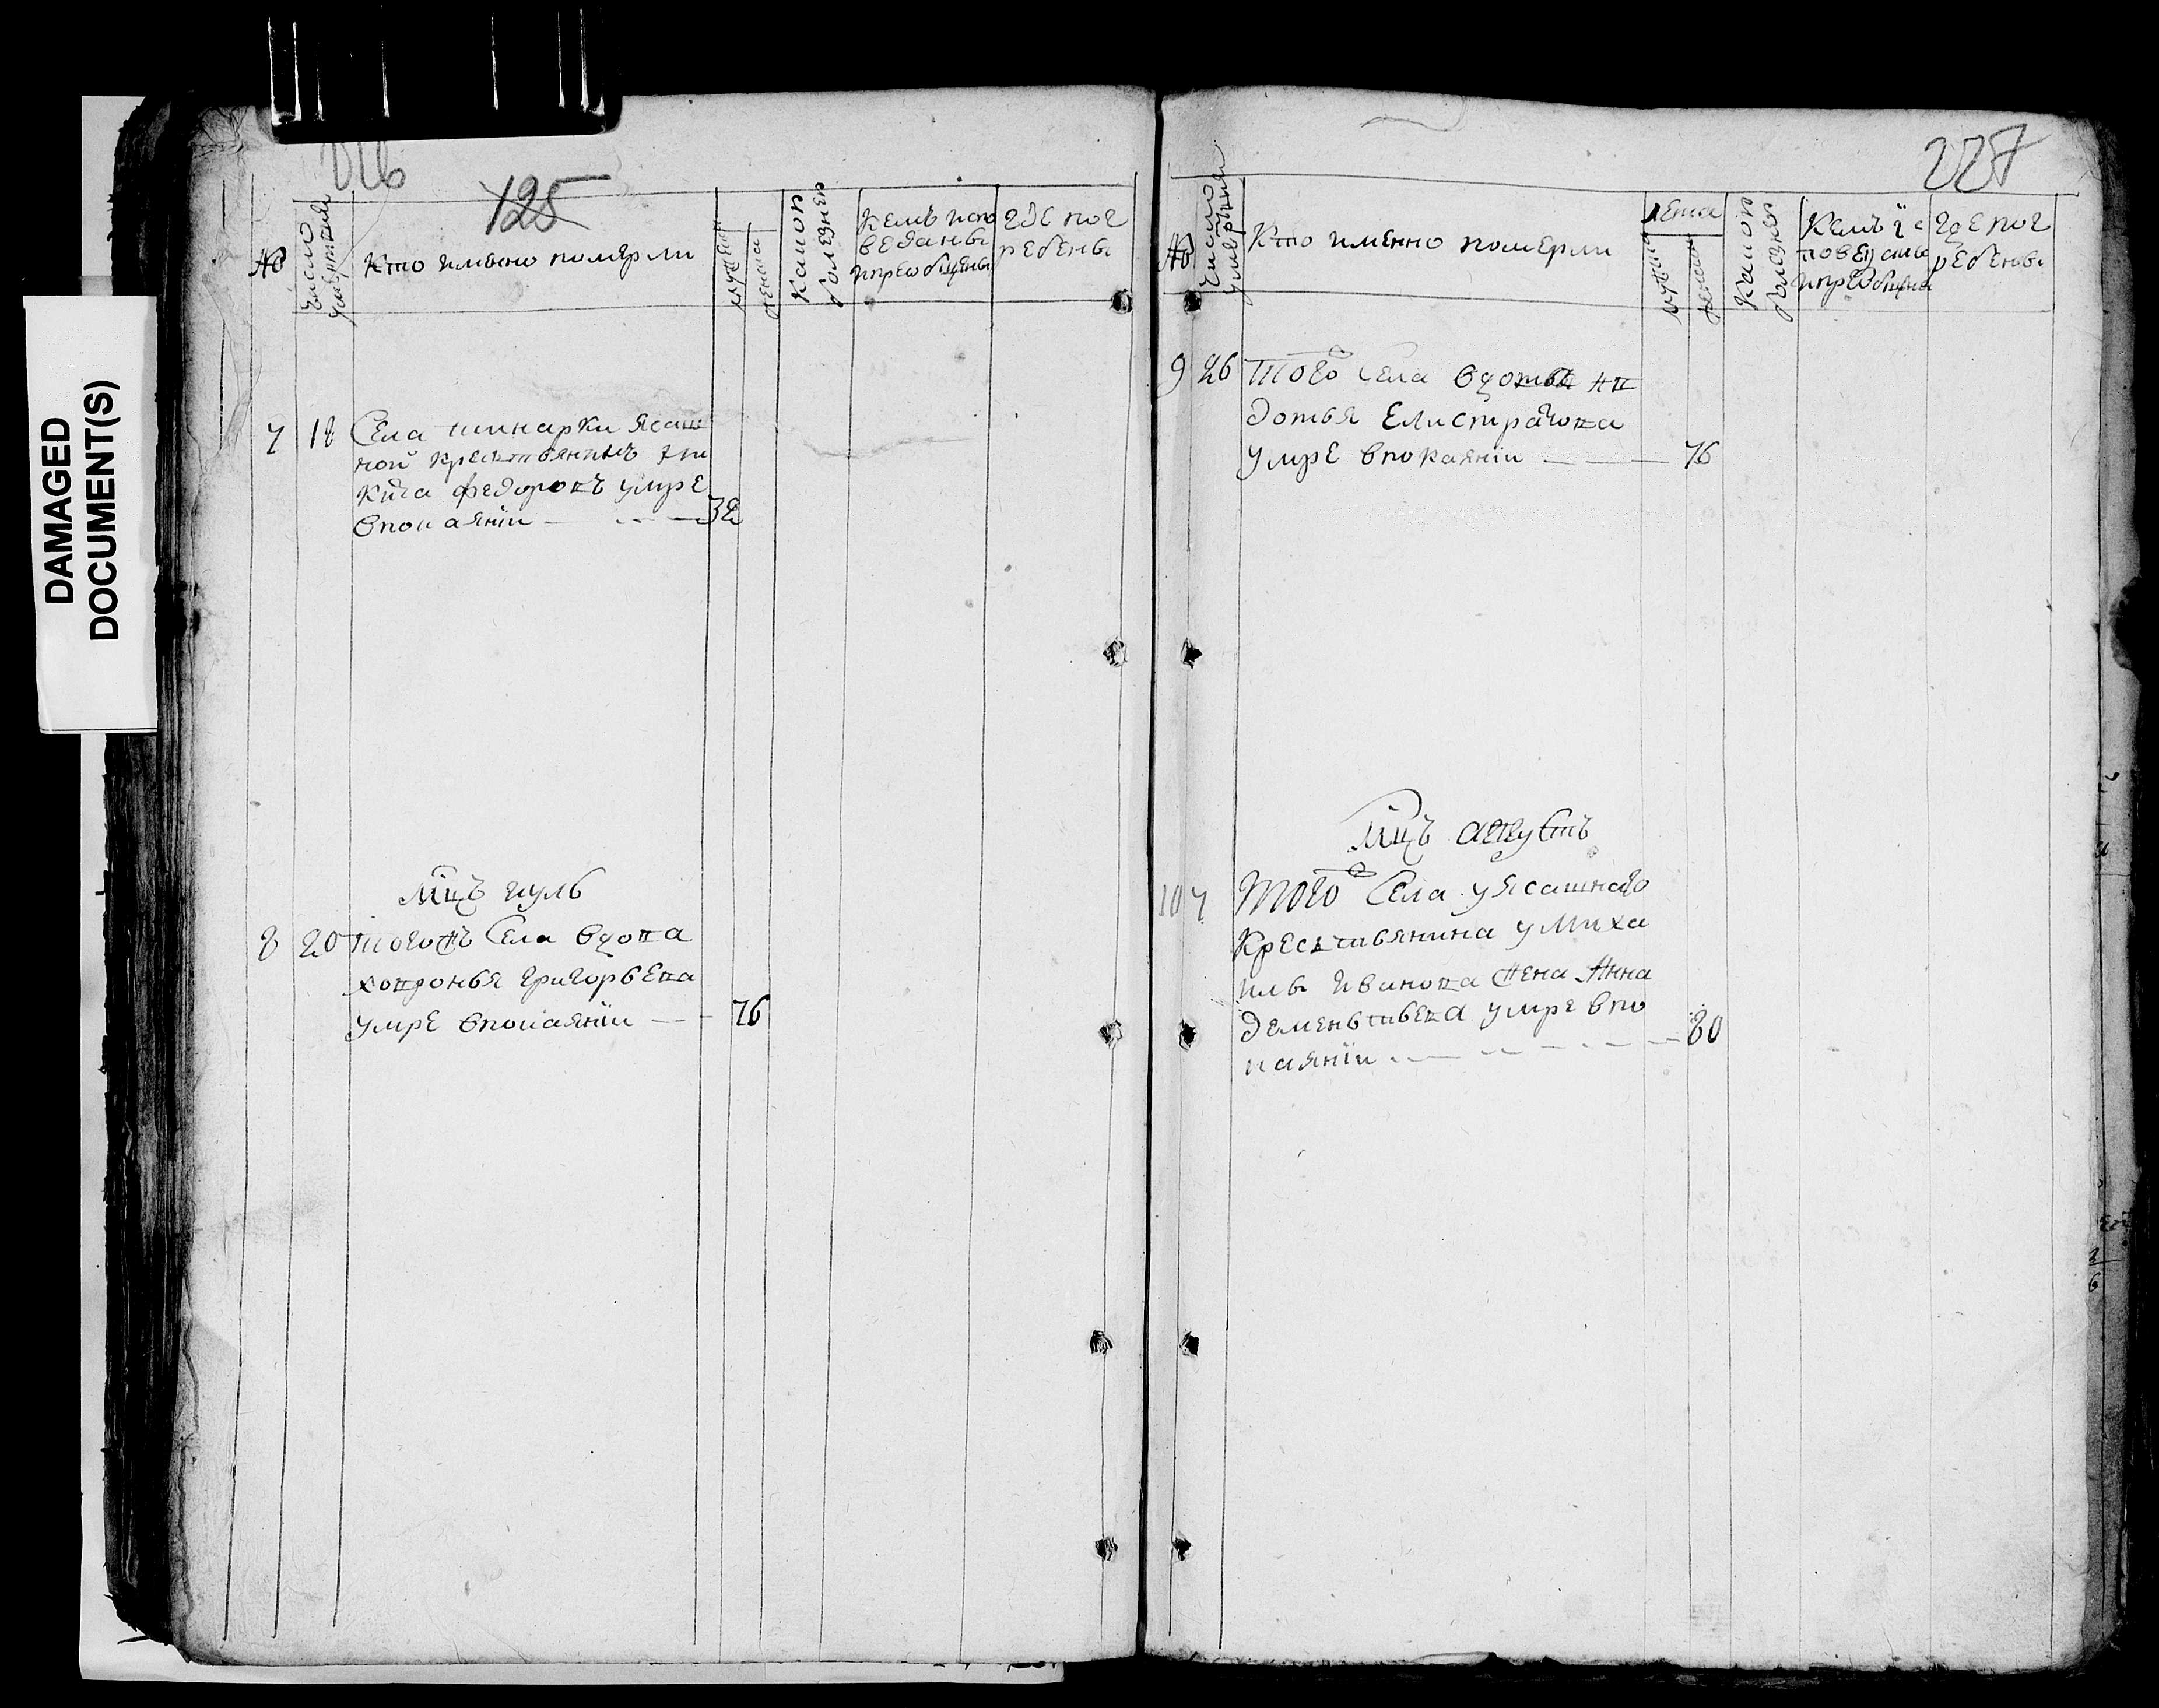 125
№
число умертвия
Кто имянно померли
мужеска
женска
Какою болезнею
Кемъ испо
ведани
и приобщены
где пог
ребены
7 18 Села шинарки ясаш
ной крестьянинъ
кита федоровъ умре
впокаянїи 32
Мцъ июль
8 20 тогожъ Села вдова
ховронья григорьева
умре впокаянїи 76
227
№
число умертвия
Кто именно померли
лета
мужеска
женска
Какою болезнею
Кемъ ис
поведаны
и приобщены
где пог
ребены
9 26 Того Села вдова ев
дотья Елистратова
умре впокаянїи 76
Мцъ августъ
10 7 Того Села у ясашнаго
Крестьянина у Миха
илы Иванова жена Анна
дементьева умре впо
каянїи 80
DAMAGED
DOCUMENT(S)